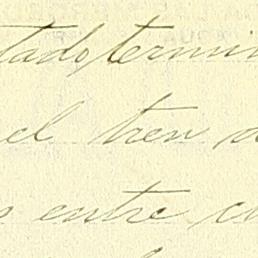 tado, termin
el tren d
s entre cu